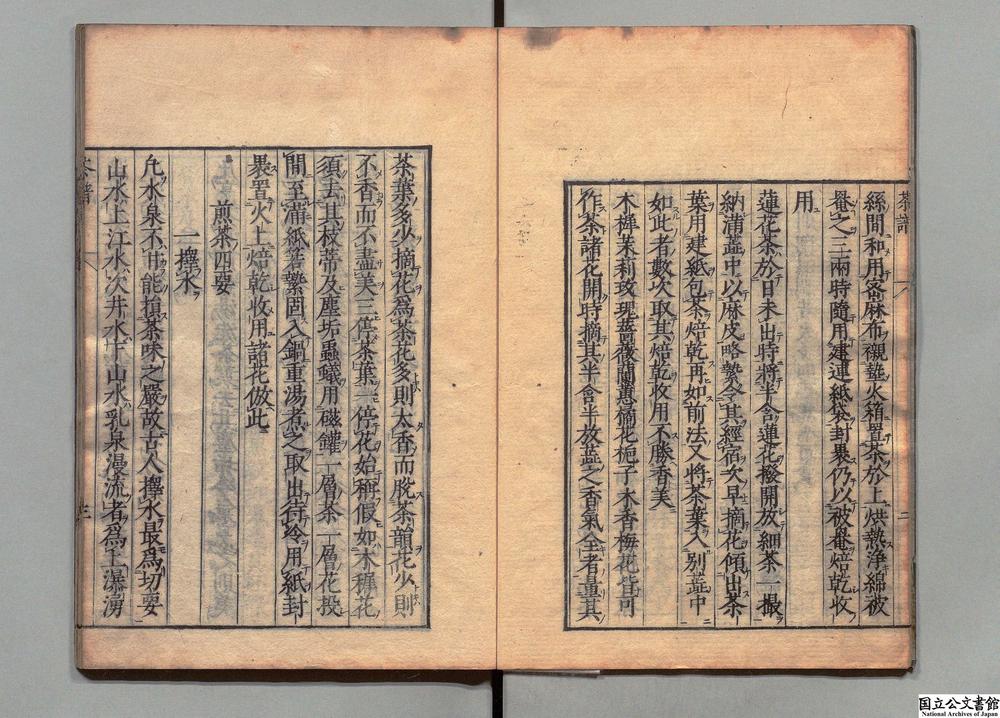 茶譜
絲間和用密麻布襯離火箱置茶於上烘熱淨綿被
罨之三兩時隨用建連紙袋封裹仍以被罨焙乾收
用
蓮花茶於日未出時將半含蓮花撥開放細茶一撮
納滿蕊中以麻皮略縶令其經宿次早摘花傾出茶
葉用建紙包茶焙乾再如前法又將茶葉入別蕊中
如此者數次取其焙乾收用不勝香美
木樨茉莉玫瑰薔薇蘭蕙橘花梔子木香梅花皆可
作茶諸花開時摘其半含半放蕊之香氣全者量其
茶葉多少摘花爲茶花多則太香而脫茶韻花少則
不香而不盡美三停茶葉一停花始稱假如木樨花
須去其枝蒂及塵垢蟲蟻用磁罐一層茶一層花投
間至滿紙箬縶固入鍋重湯煮之取出待冷用紙封
裹置火上焙乾收用諸花倣此
煎茶四要
一擇水
凢水泉不甘能損茶味之嚴故古人擇水最爲切要
山水上江水次井水下山水乳泉漫流者爲上瀑湧
茶譜
国立公文書館
National Archives of Japan